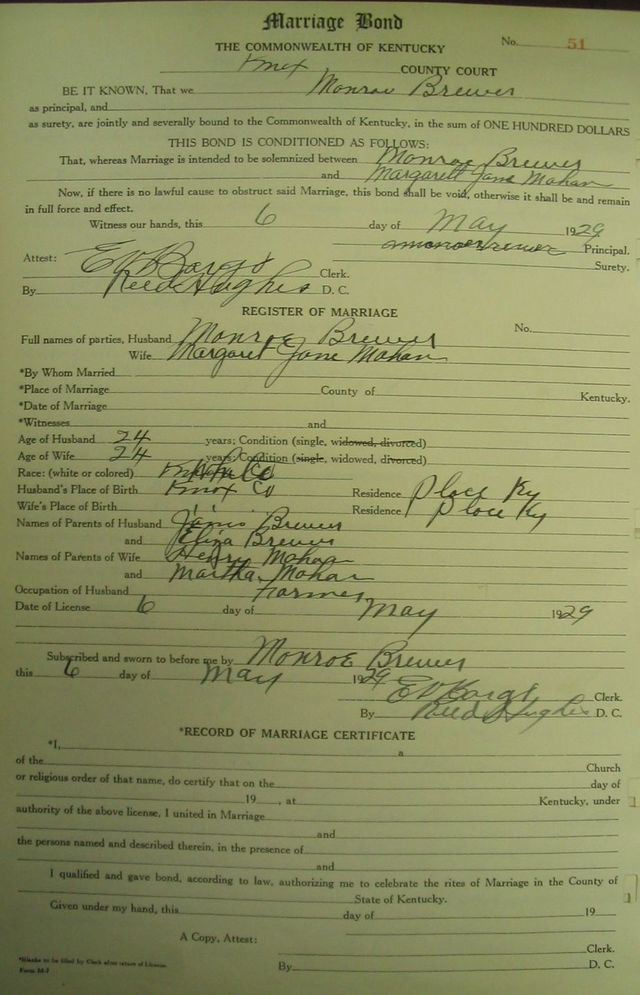 Marriage Bond
THE COMMONWEALTH OF KENTUCKY No. 51
Knox COUNTY COURT
BE IT KNOWN, That we Monroe Brewer
as principal, and
as surety, are jointly and severally bound to the Commonwealth of Kentucky, in the sum of ONE HUNDRED DOLLARS
THIS BOND IS CONDITIONED AS FOLLOWS:
That, whereas Marriage is intended to be solemnized between Monroe Brewer
and Margarett Jane Mahan
Now, if there is no lawful cause to obstruct said Marriage, this bond shall be void, otherwise it shall be and remain
in full force and effect.
Witness our hands, this 6 day of May 1929
Monroe Brewer Principal.
Attest: Surety.
Clerk.
By Reed S Hughes D. C.
REGISTER OF MARRIAGE
Full names of parties, Husband Monroe Brewer No.
Wife Margaret Jane Mahan
*By Whom Married
*Place of Marriage County of Kentucky.
*Date of Marriage
*Witnesses and
Age of Husband 24 years; Condition (single, widowed, divorced)
Age of Wife 24 years; Condition (single, widowed, divorced)
Race: (white or colored)
Husband's Place of Birth Knox Co Residence Place Ky
Wife's Place of Birth " " Residence Place Ky
Names of Parents of Husband Brewer
and Eliza Brewer
Names of Parents of Wife Henry Mahan
and Martha Mahan
Occupation of Husband Farmer
Date of License 6 day of May 1929
Subscribed and sworn to before me by Monroe Brewer
this 6 day of May 1929
Clerk.
By Reed S Hughes D. C.
*RECORD OF MARRIAGE CERTIFICATE
*I, a
of the Church
or religious order of that name, do certify that on the day of
19 , at Kentucky, under
authority of the above license, I united in Marriage
and
the persons named and described therein, in the presence of
and
I qualified and gave bond, according to law, authorizing me to celebrate the rites of Marriage in the County of
State of Kentucky.
Given under my hand, this day of 19
A Copy, Attest:
Clerk.
*Blanks to be filled by Clerk after return of License.
Form M-2
By D. C.